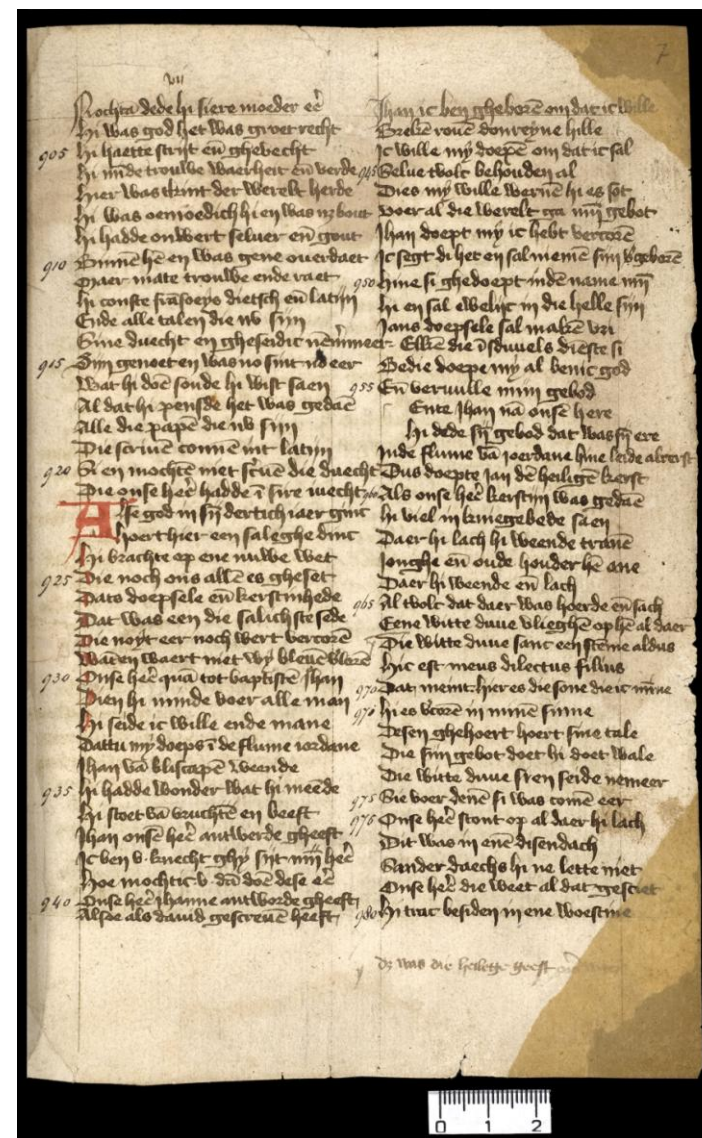 vii
7
Nochtā dede hi siere moeder eē
hi was god het was groet recht
905 hi haette strijt eñ ghevecht
hi mīde trouwe waerheit eñ verde
hier was kint der werelt herde
hi was oemoedich hi en was nz bout
hi hadde onwert selver eñ gout
910 Binnē hē en was gene overdaet
Maer mate trouwe ende raet
hi conste frāsoeys dietsch eñ latijn
Ende alle talen die nv sijn
Sine duecht en gheseidic nēmmeer
915 Sijn genoet en was no sint no eer
Wat hi doē soude hi wist saen
Al dat hi pensde het was gedaē
Alle die papē die nv sijn
Die scrivē connē int latijn
920 Si en mochtē niet scrivē die duecht
Die onse heē hadde ī sire iuecht
Alse god in sijn dertich iaer ginc
hoert hier een saleghe dinc
hi brachte op ene nuwe wet
925 Die noch ons allē es gheset
Dats doepsele eñ kerstinhede
Dat was een die salichste sede
Die noyt eer noch wert vercorē
Wāt en waert niet wy blevē vlorē
930 Onse heē quā tot baptistē ihan
Dien hi minde voer alle man
hi seide ic wille ende mane
Dattu my doeps ī de flume iordane
Ihan vā bliscapē weende
935 hi hadde wonder wat hi meēde
hi stoet vā vruchtē en beeft
Ihan onsē heē antwerde gheeft
Ic ben v knecht ghy sijt mijn heē
hoe mochtic v dā doē dese eē
940 Onse heē ihanne antworde gheeft
Alsoe als david gescrevē heeft
Ihan ic ben gheborē om dat ic wille
Brekē rouē donreyne hille
Ic wille my doepē om dat ic sal
945 Selve tvolc behouden al
Dies my wille wernē hi es sot
voer al die werelt ga mijn gebot
Ihan doept my ic hebt vercorē
Ic segt di het en sal niemē sijn vgeborē
950 hine si ghedoept indē name mijn
hi en sal ewelijc in die helle sijn
Jans doepsele sal makē vri
Elkē die īsduvels dieste si
Bedie doepe my al benic god
955 Eñ vervulle mijn gebod
Ente Ihan nā onsē here
hi dede sijn gebod dat was sijn ere
Inde flume vā joerdane hine leide alrerst
Dus doepte Jan dē heiligē kerst
960 Als onse heē kerstijn was gedaē
hi viel in kniegebede saen
Daer hi lach hi weende tranē
Jonghe eñ oude houder hē ane
Daer hi weende eñ lach
965 Al tvolc dat daer was hoerde eñ sach
Eene witte duve vlieghē op hē al daer
Die witte duve sanc een stēme aldus
hic est meus dilectus filius
970 Dat meint hier es die sone die ic mīne
971 hi es vcorē in minē sinne
Desen ghehoert hoert sine tale
Die sijn gebot doet hi doet wale
Die witte duve sren seide nemeer
975 Sie voer denē si was comē eer
976 Onse heē stont op al daer hi lach
Dit was in enē disendach
Sander daechs hi ne lette niet
Onse heē die weet al dat gesciet
980 hi trac besiden in ene woestine
dz was die heilege geest